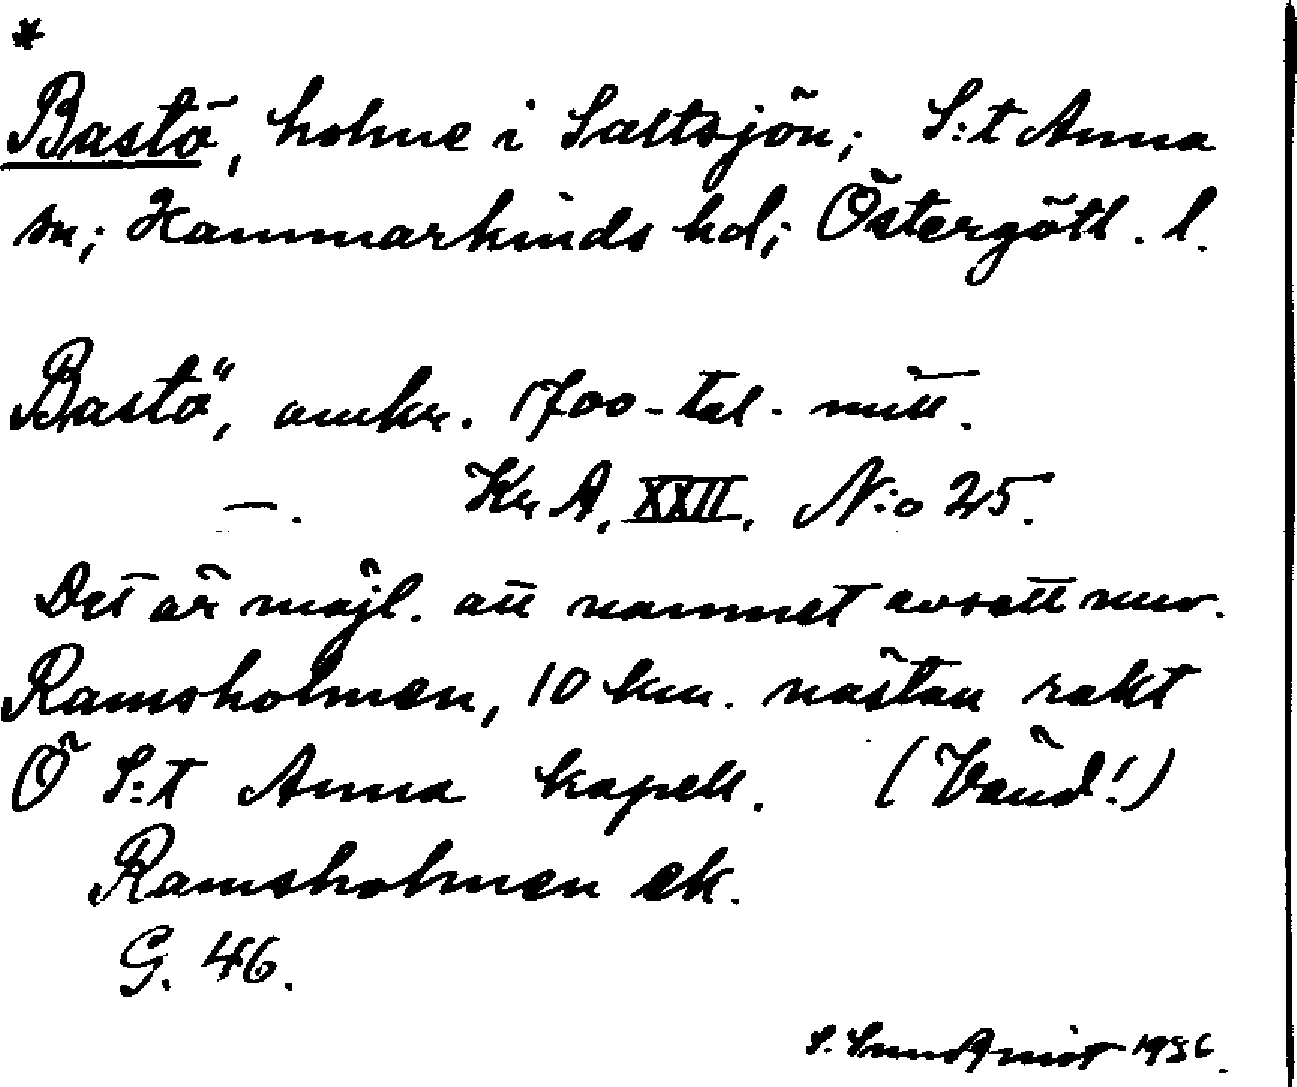 *
Bastö, holme i Saltsjön; S:t Anna
sn; Hammarkinds hd; Östergötl. l.
Bastö, omkr. 1700-tal. mitt.
—. Kr A, XXII, N:o 25.
Det är möjl. att namnet avsett nuv.
Ramsholmen, 10 km. nästan rakt
Ö S:t Anna kapell. (Vänd!)
Ramsholmen ek.
G. 46.
S. 1936.